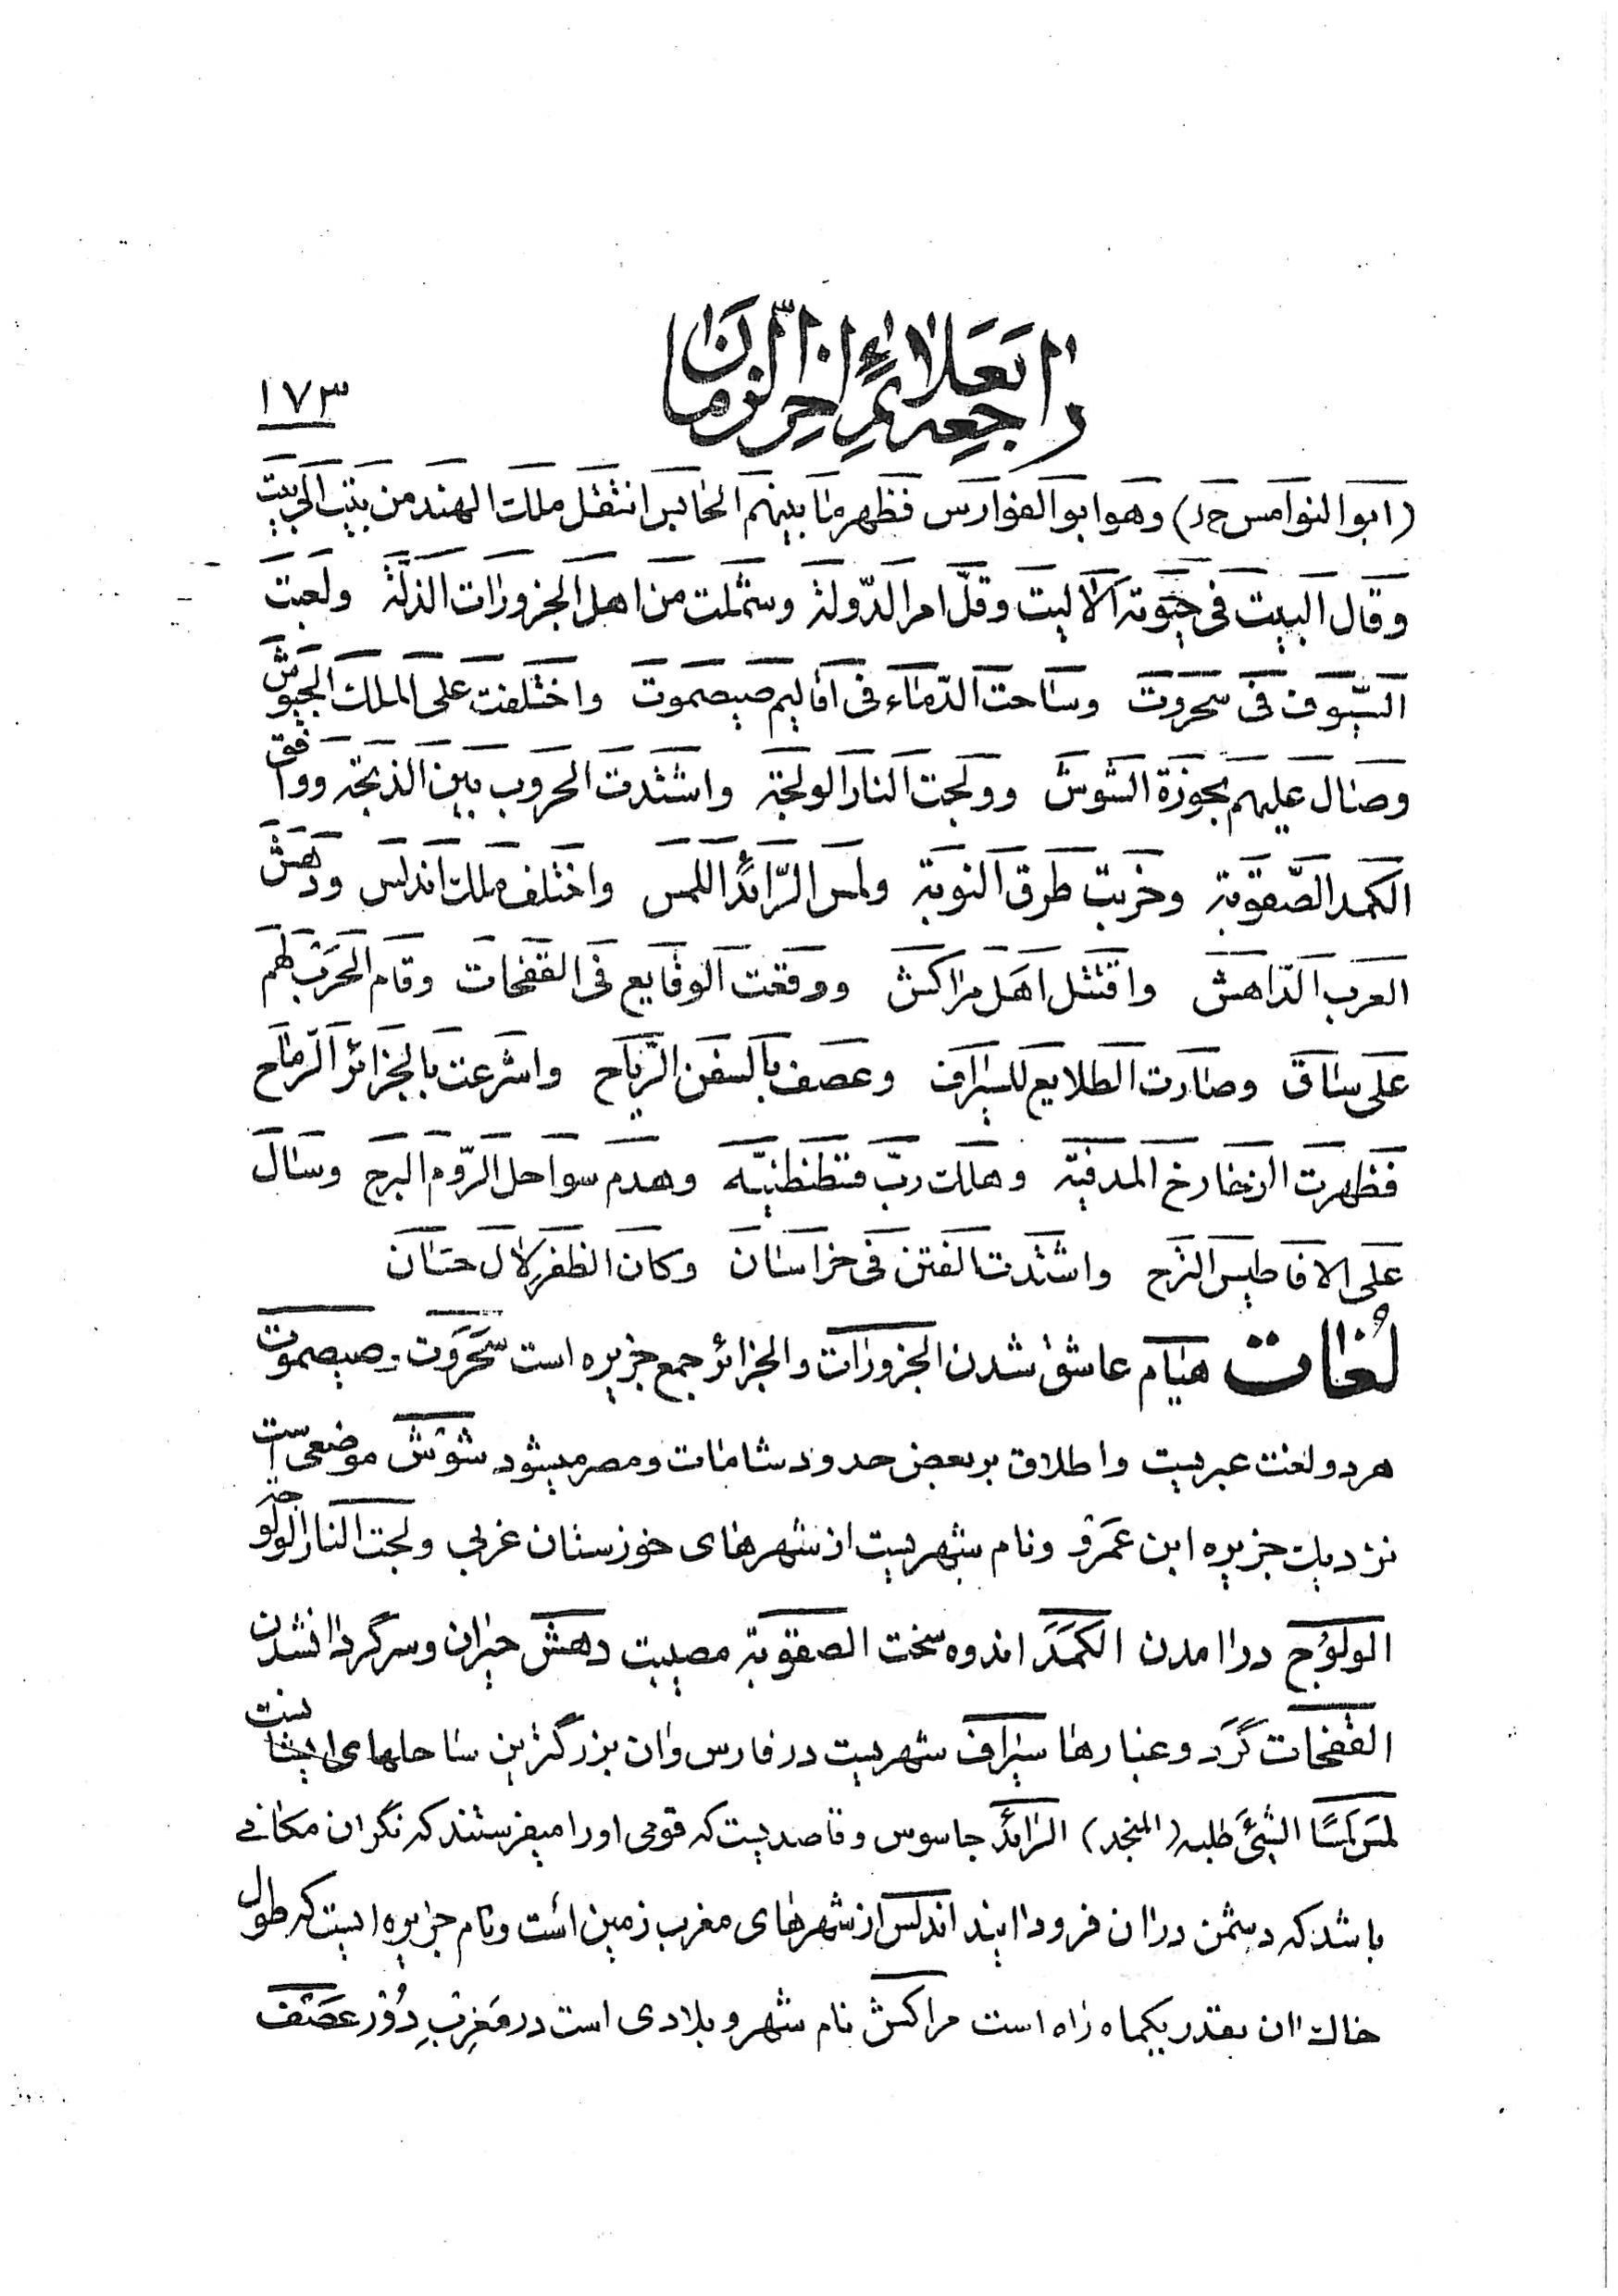 راجعه بعلائم اخر الزمان
۱۷۳
(ابوالنوامس خ‌د) وهو ابوالفوارس فظهر ما بينهم الخابس انتقل ملك الهند من بيت الى بيت
وقال البيت فى حيوته الاليت وقلّ امر الدّولة وشملت من اهل الجزورات الذلّة ولعبت
السّيوف فى سحروت وساحت الدّماء فى اقاليم صيصموت واختلفت على الملك الجيوش
وصال عليهم بجوزة الشوش وولجت النار الولجة واشتدت الحروب بين الذبحة ووافق
الكمد الصّقوبة وخربت طرق النوبة ولمس الرّائد اللمس واختلف ملك اندلس ودهش
العرب الدّاهش واقتتل اهل مراكش ووقعت الوقايع فى القفخات وقام الحرب لهم
على ساق وصارت الطلايع للسيراف وعصف بالسفن الرّياح واشرعت بالجزائر الرّماح
فظهرت الزخارخ المدفية وهلك ربّ قنطنطنيّه وهدم سواحل الرّوم البرج وسال
على الافاطيس الزح واشتدت الفتن فى خراسان وكان الظفر لال حسان
لُغات هيام عاشق شدن الجزورات والجزائر جمع جزيره است سَحَرَوت وصيصموت
هر دو لغت عبريست واطلاق بر بعض حدود شامات ومصر ميشود شوش موضعى است
نزديك جزيره ابن عَمَرو ونام شهريست از شهرهاى خوزستان غربى ولجت النار الولوجة
الولُوج درامدن الكَمَدَ اندوه سخت الصقوبة مصيبت دهش حيران وسرگردان شدن
القفخات گَرد وغبارها سيراف شهريست در فارس وان بزرگترين ساحلهاى ايشانست
لمَسَ لَمسًا الشَّئَ طلبه (المنجد) الرّائد جاسوس وقاصديست كه قومى اورا ميفرستند كه نگران مكانى
باشد كه دشمن دران فرود ايند اندلس از شهرهاى مغرب زمين است ونام جزيره ايست كه طول
خاك ان بقدر يكماه راه است مراكش نام شهر وبلادى است در مَغرِبِ دُور عَصَفَ